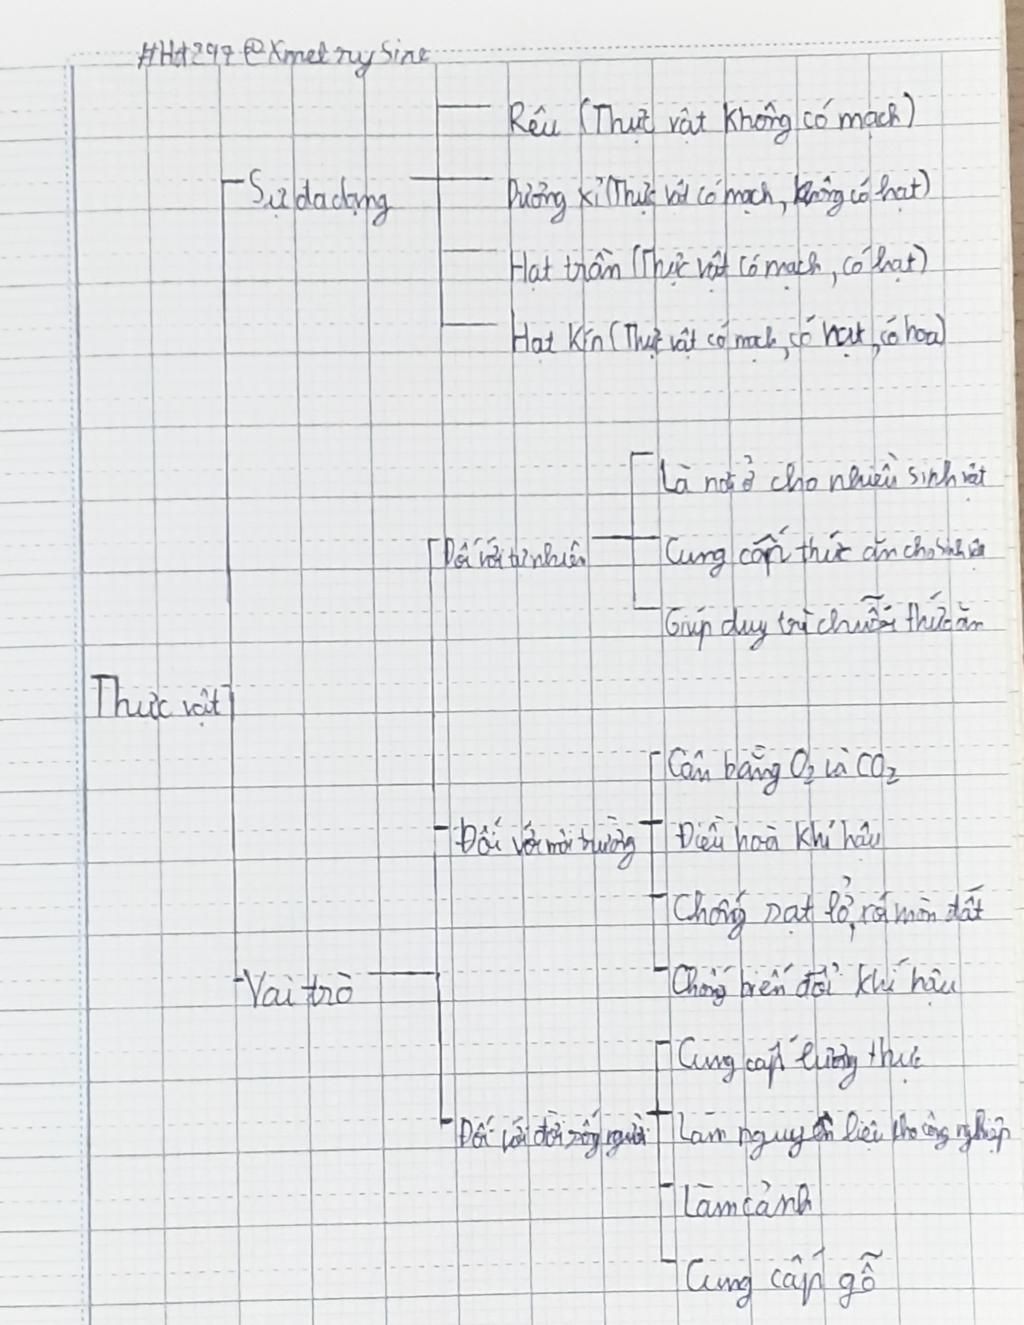 #Hd297@XmetrySine
Rêu (Thực vật không có mạch)
Sự đa dạng
Dương xỉ (Thực vật có mạch, không có hạt)
Hạt trần (Thực vật có mạch, có hạt)
Hạt kín (Thực vật có mạch, có hạt, có hoa)
Là nơi ở cho nhiều sinh vật
Đối với tự nhiên
Cung cấp thức ăn cho sinh vật
Giúp duy trì chuỗi thức ăn
Thực vật
Cân bằng O₂ và CO₂
Đối với môi trường
Điều hoà khí hậu
Chống sạt lở, xói mòn đất
Vai trò
Chống biến đổi khí hậu
Cung cấp lương thực
Đối với đời sống người
Làm nguyên liệu cho công nghiệp
Làm cảnh
Cung cấp gỗ